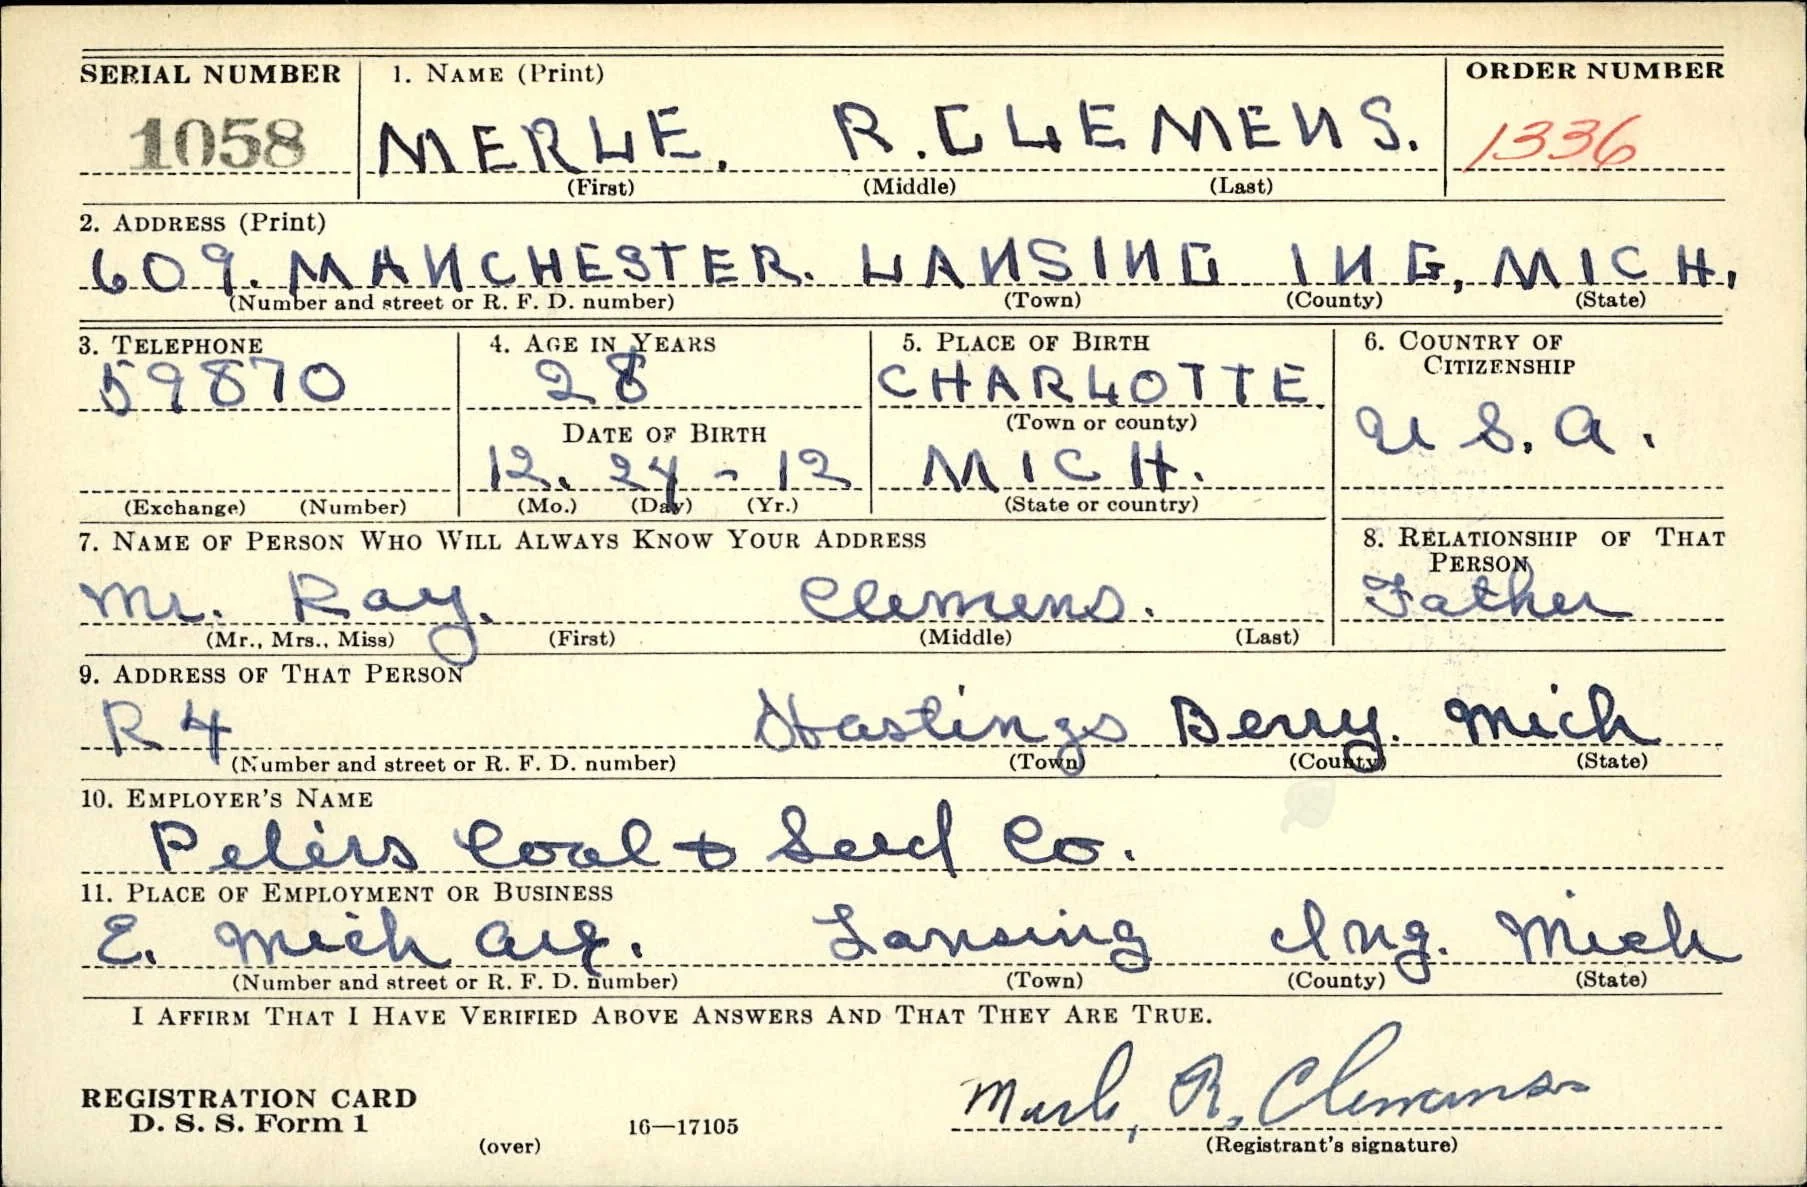 SERIAL NUMBER 1. NAME (Print) ORDER NUMBER
1058 MERLE. R. CLEMENS. 1336
(First) (Middle) (Last)
2. ADDRESS (Print)
609. MANCHESTER. LANSING ING, MICH.
(Number and street or R. F. D. number) (Town) (County) (State)
3. TELEPHONE 4. AGE IN YEARS 5. PLACE OF BIRTH 6. COUNTRY OF CITIZENSHIP
59870 28 CHARLOTTE U. S. A.
(Town or county)
DATE OF BIRTH
12. 24 - 12 MICH.
(Exchange) (Number) (Mo.) (Day) (Yr.) (State or country)
7. NAME OF PERSON WHO WILL ALWAYS KNOW YOUR ADDRESS 8. RELATIONSHIP OF THAT PERSON
Mr. Ray. Clemens. Father
(Mr., Mrs., Miss) (First) (Middle) (Last)
9. ADDRESS OF THAT PERSON
R 4 Hastings Berry. Mich
(Number and street or R. F. D. number) (Town) (County) (State)
10. EMPLOYER'S NAME
Peters Coal & Seed Co.
11. PLACE OF EMPLOYMENT OR BUSINESS
E. Mich Lansing Ing. Mich
(Number and street or R. F. D. number) (Town) (County) (State)
I AFFIRM THAT I HAVE VERIFIED ABOVE ANSWERS AND THAT THEY ARE TRUE.
Merle, R. Clemens
REGISTRATION CARD
D. S. S. Form 1 (over) 16—17105 (Registrant's signature)